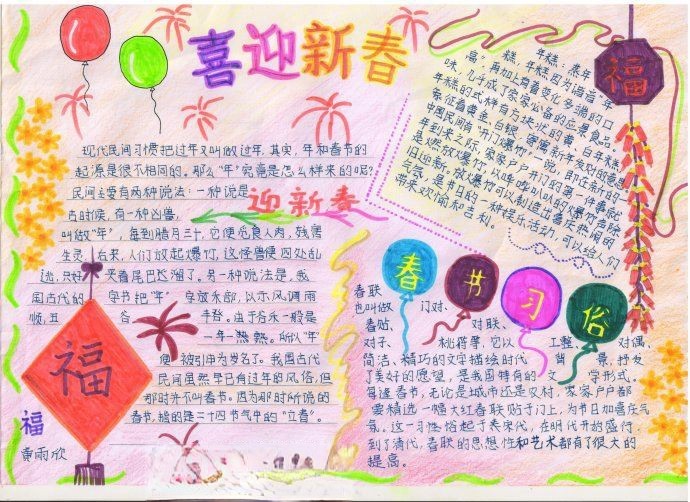 喜迎新春
现代民间习惯把过年又叫做过年,其实,年和春节的
起源是很不相同的。那么"年"究竟是怎么样来的呢?
民间主要有两种说法:一种说是
古时候,有一种凶兽,
叫做"年",每到腊月三十,它便觅食人肉,残害
生灵。后来,人们放起爆竹,这怪兽便四处乱
逃,只好夹着尾巴逃溜了。另一种说法是,我
国古代的字书把"年"字放禾部,以示风调雨
顺,五谷丰登。由于谷禾一般是
一年一熟。所以"年"
便被引申为岁名了。我国古代
民间虽然早已有过年的风俗,但
那时并不叫春节。因为那时所说的
春节,指的是二十四节气中的"立春"。
迎新春
福
福
黄雨欣
年糕:蒸年
糕,年糕因为谐音"年
高",再加上有着变化多端的口
味,几乎成了家家必备的应景食品。
年糕的式样有方块状的黄、白年糕,
象征着黄金、白银,寄寓新年发财的意思
中国民间有"开门爆竹"一说。即在新的一
年到来之际,家家户户开门的第一件事就
是燃放爆竹,以哔哔叭叭的爆竹声除
旧迎新。放爆竹可以制造出喜庆热闹的
气氛,是节日的一种娱乐活动,可以给人们
带来欢愉和吉利。
福
春节习俗
春联
也叫做门对、
春贴、对联、
对子、桃符等,它以工整、对偶、
简洁、精巧的文字描绘时代背景,抒发
了美好的愿望,是我国特有的文学形式。
每逢春节,无论是城市还是农村,家家户户都
要精选一幅大红春联贴于门上,为节日加喜庆气
氛。这一习俗起于宋代,在明代开始盛行,
到了清代,春联的思想性和艺术都有了很大的
提高。